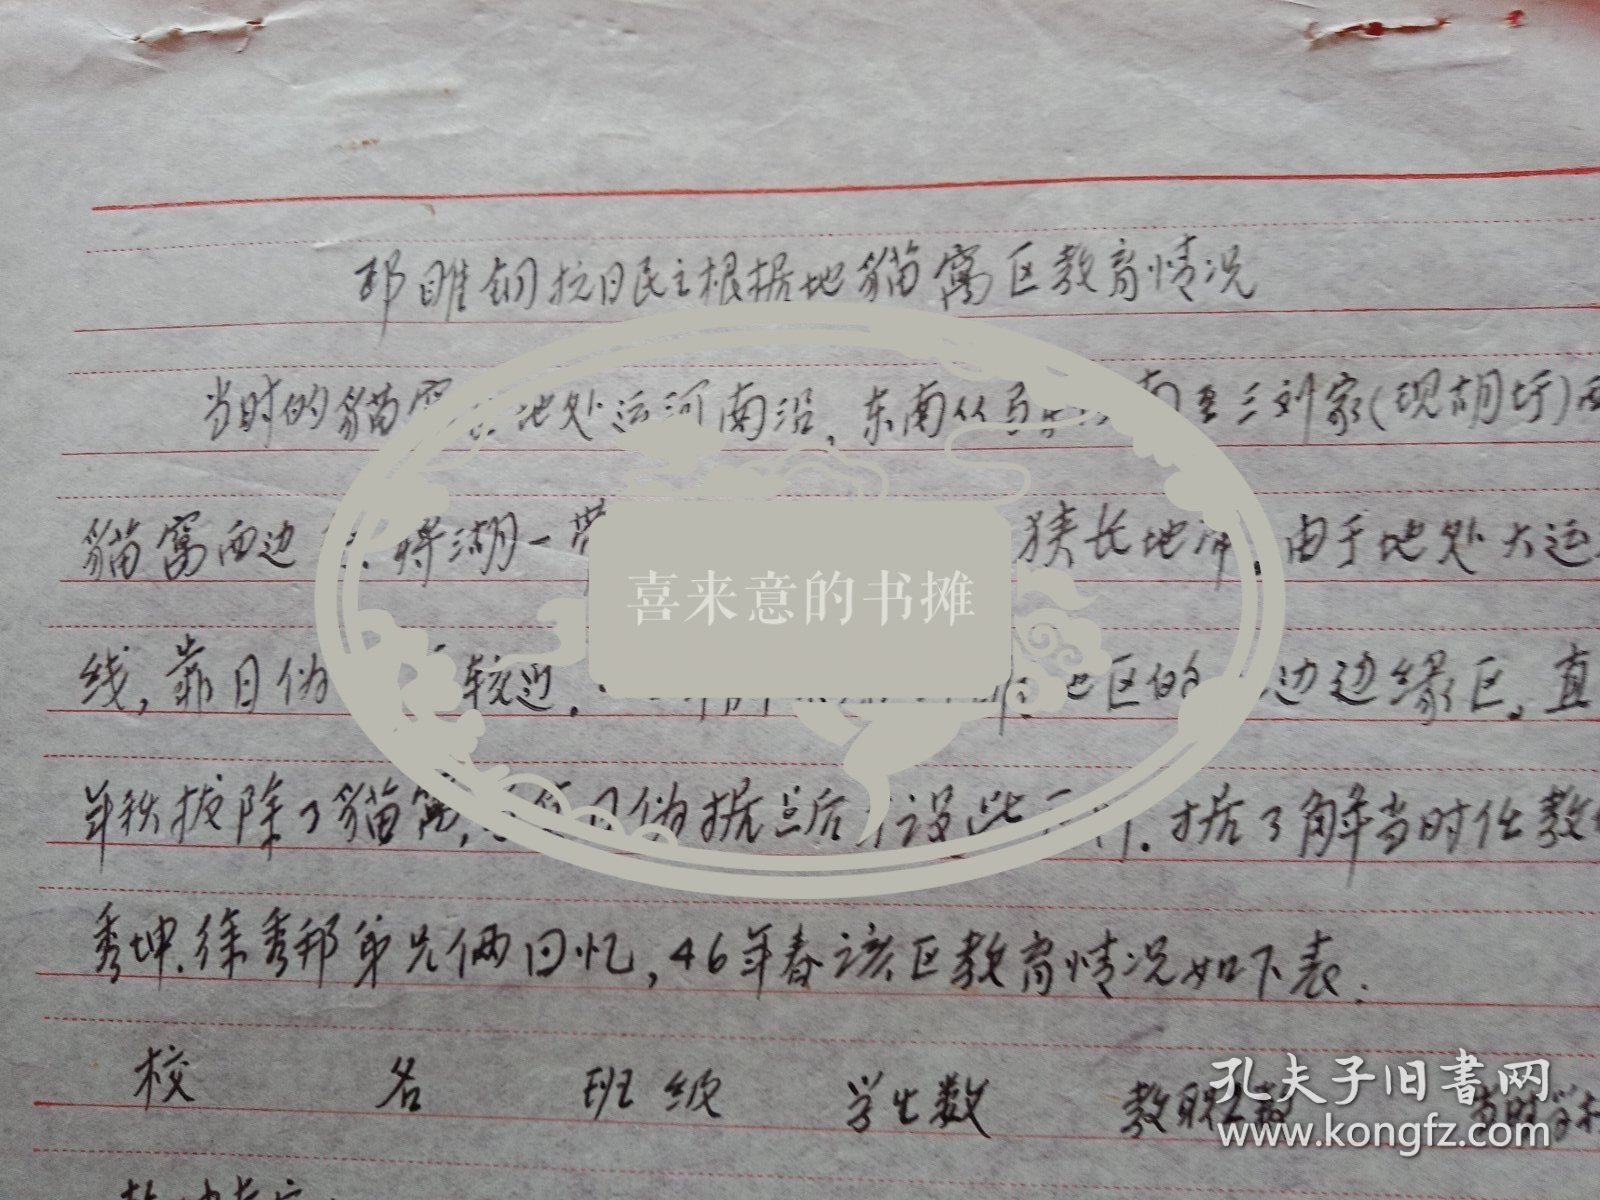 邳睢铜抗日民主根据地猫窝区教育情况
当时的猫窝 地处运河南沿,东南从 南至三刘家(现胡圩)
猫窝西边 蒋湖一带 狭长地带,由于地处大运
线,靠日伪 较近, 地区的 边边缘区。直
年秋拔除了猫窝, 日伪据点后才设此 。据了解当时任教
秀坤.徐秀邦弟兄俩回忆,46年春该区教育情况如下表:
校 名 班级 学生数 教职工数 当时学
喜来意的书摊
孔夫子旧书网
www.kongfz.com